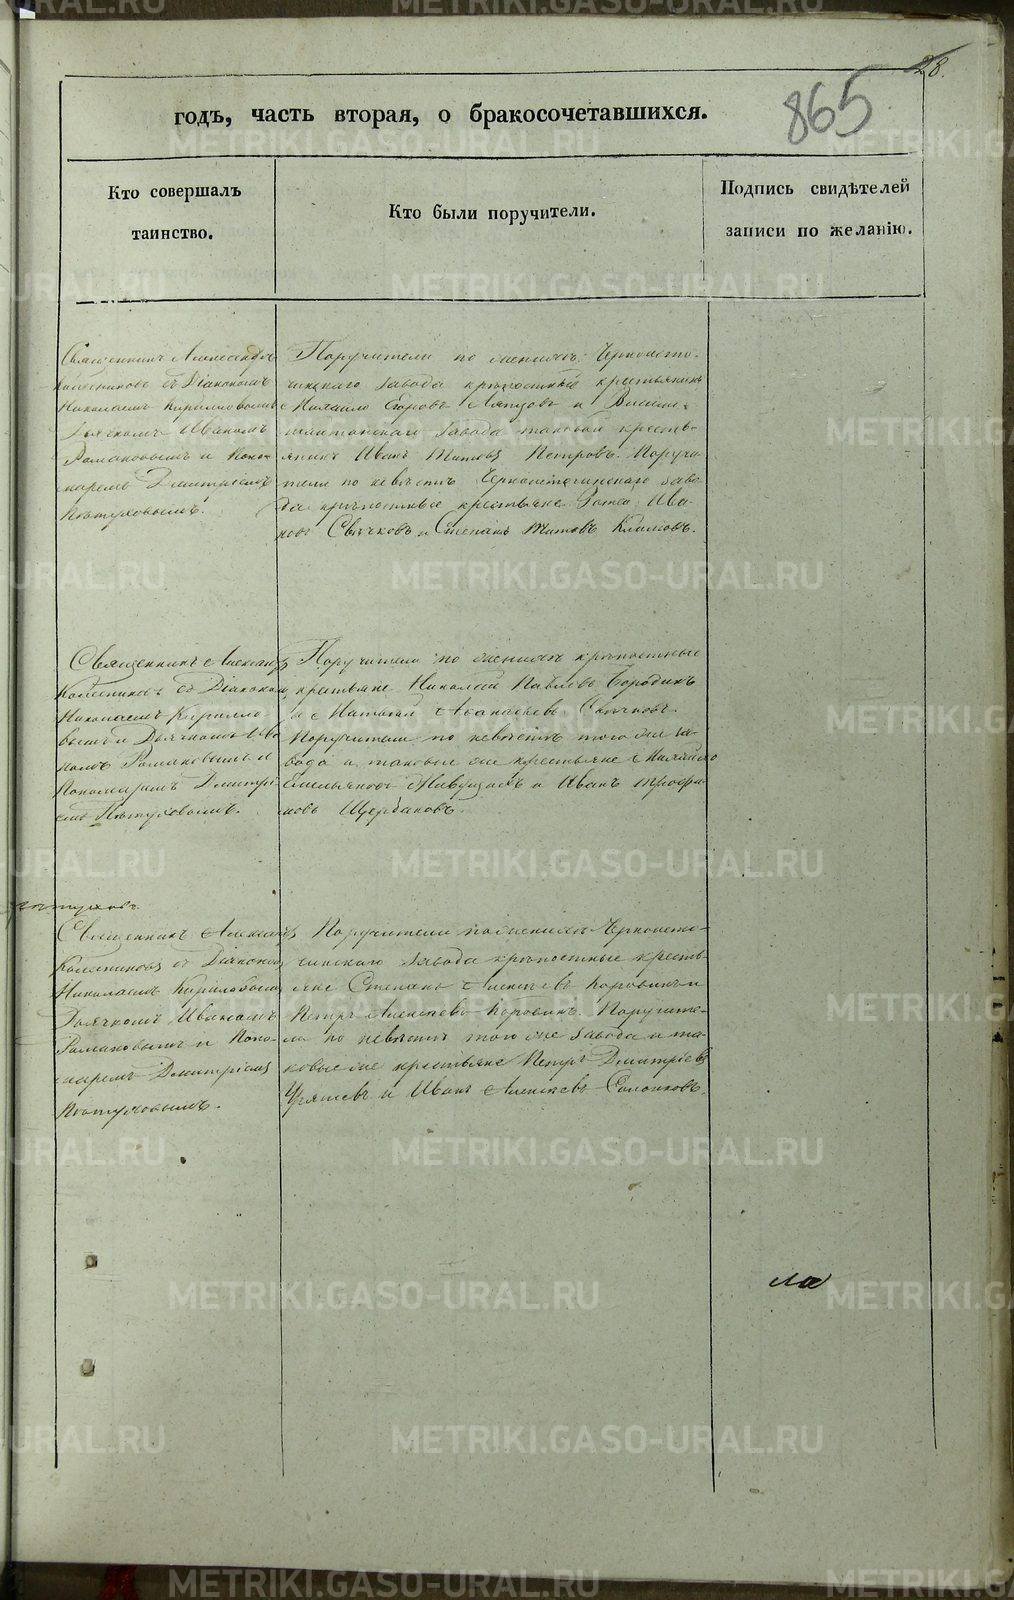 28.
865
годъ, часть вторая, о бракосочетавшихся.
Кто совершалъ
таинство.
Кто были поручители.
Подпись свидѣтелей
записи по желанію.
Священникъ Александръ
Колесниковъ съ Діакономъ
Николаемъ Кирилловымъ
Дьячкомъ Иваномъ
Романовымъ и Поно-
маремъ Дмитріемъ
Пѣтуховымъ.
Поручители по женихѣ: Черноисто-
чинскаго завода крѣпостные крестьянинъ
Михаило Егоровъ и Висимо-
шайтанскаго завода таковой кресть-
янинъ Иванъ Титовъ Петровъ. Поручи-
тели по невѣстѣ Черноисточинскаго заво-
да крѣпостные крестьяне Ива-
новъ Сычковъ и Степанъ Титовъ Климовъ.
Священникъ Александръ
Колесниковъ съ Діакономъ
Николаемъ Кирилло-
вымъ и Дьячкомъ Ива-
номъ Романовымъ и
Пономаремъ Дмитрі-
емъ Пѣтуховымъ.
Поручители по женихѣ крѣпостные
крестьяне Николай Павловъ Бородинъ
и Матвей Афанасьевъ Сычковъ.
Поручители по невѣстѣ того же за-
вода и таковые же крестьяне Михайло
Емельяновъ и Иванъ Трофи-
мовъ Щербаковъ.
Священникъ Александръ
Колесниковъ съ Діакономъ
Николаемъ Кириловымъ
Дьячкомъ Иваномъ
Романовымъ и Поно-
маремъ Дмитріемъ
Пѣтуховымъ.
Поручители по женихѣ Черноисто-
чинскаго завода крѣпостные кресть-
яне Степанъ Алексѣевъ Коровинъ и
Петръ Алексѣевъ Коровинъ. Поручите-
ли по невѣстѣ того же завода и та-
ковые же крестьяне Петръ Дмитріевъ
и Иванъ Алексѣевъ Солонковъ.
ла
METRIKI.GASO-URAL.RU